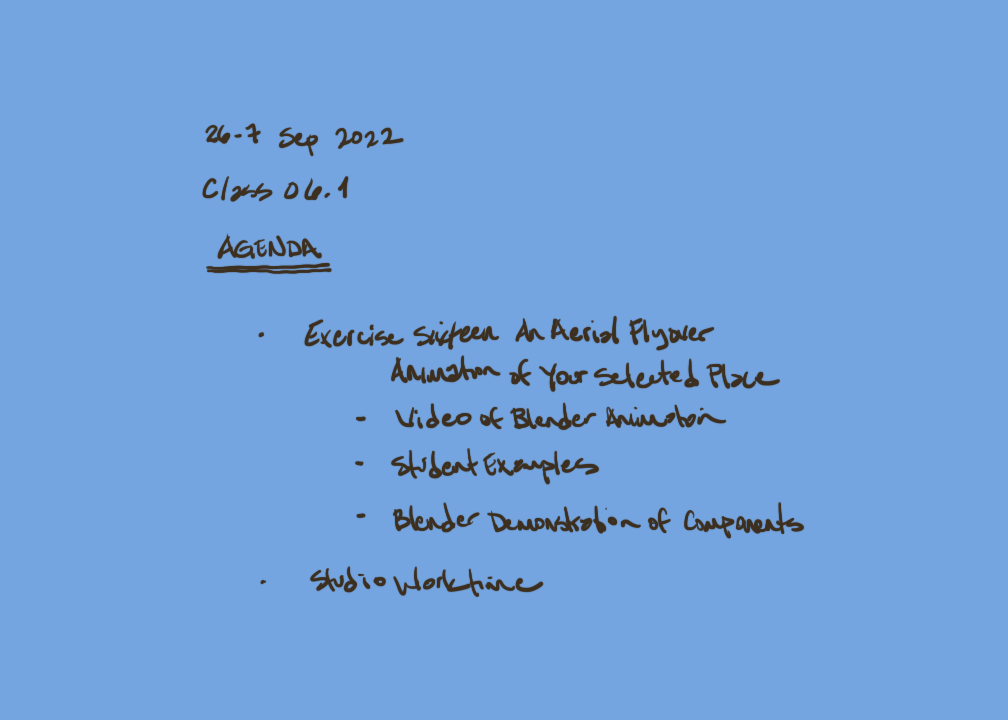 26-7 Sep 2022
Class 06.1
AGENDA
· Exercise Sixteen An Aerial Flyover
Animation of Your Selected Place
- Video of Blender Animation
- Student Examples
- Blender Demonstration of Components
· Studio Worktime